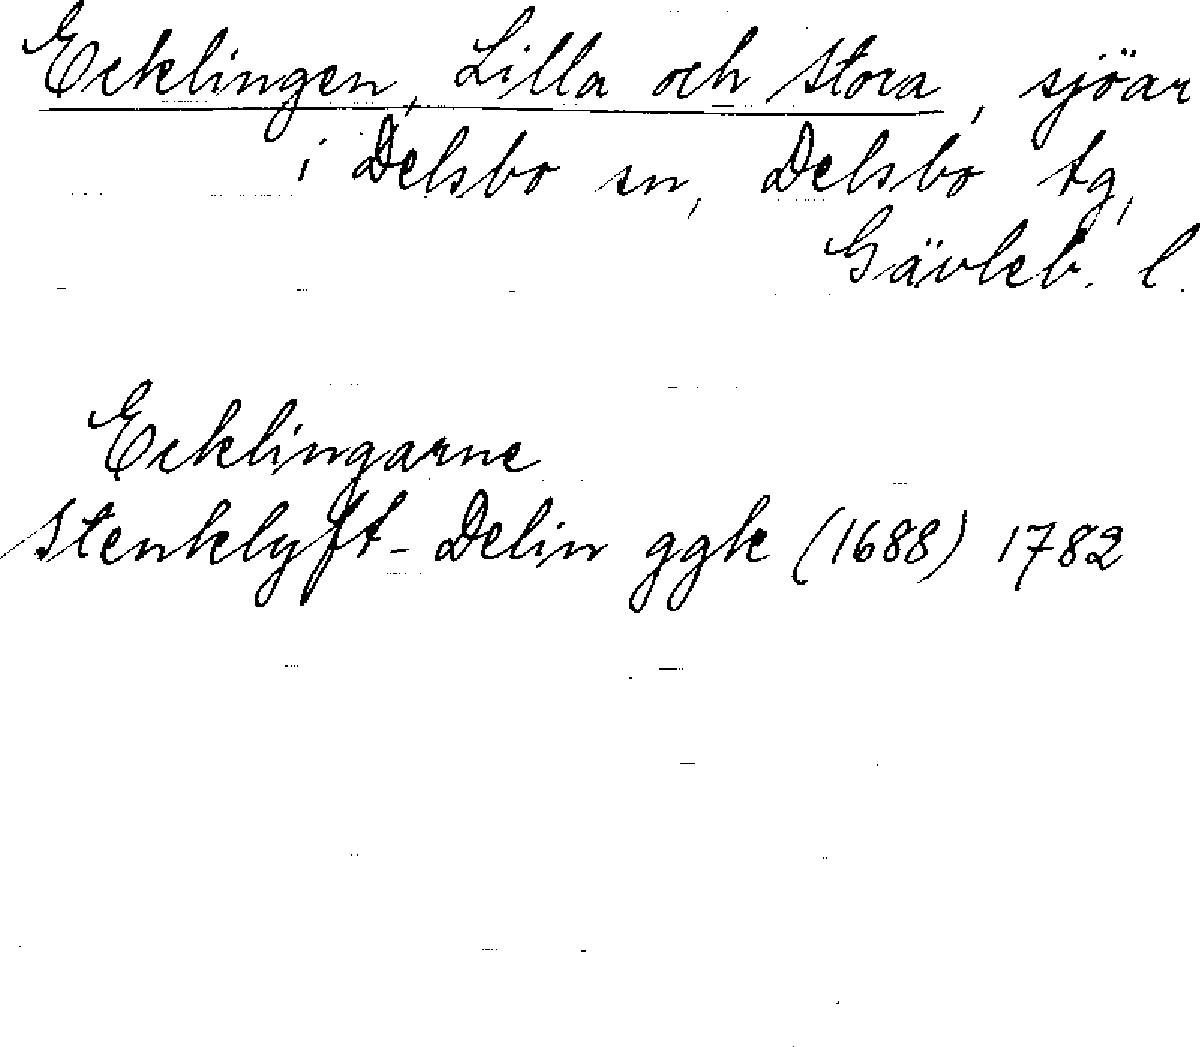 Ecklingen, Lilla och Stora, sjöar
i Delsbo sn, Delsbo tg,
Gävleb. l.
Ecklingarne
Stenklyft - Delin ggk (1688) 1782